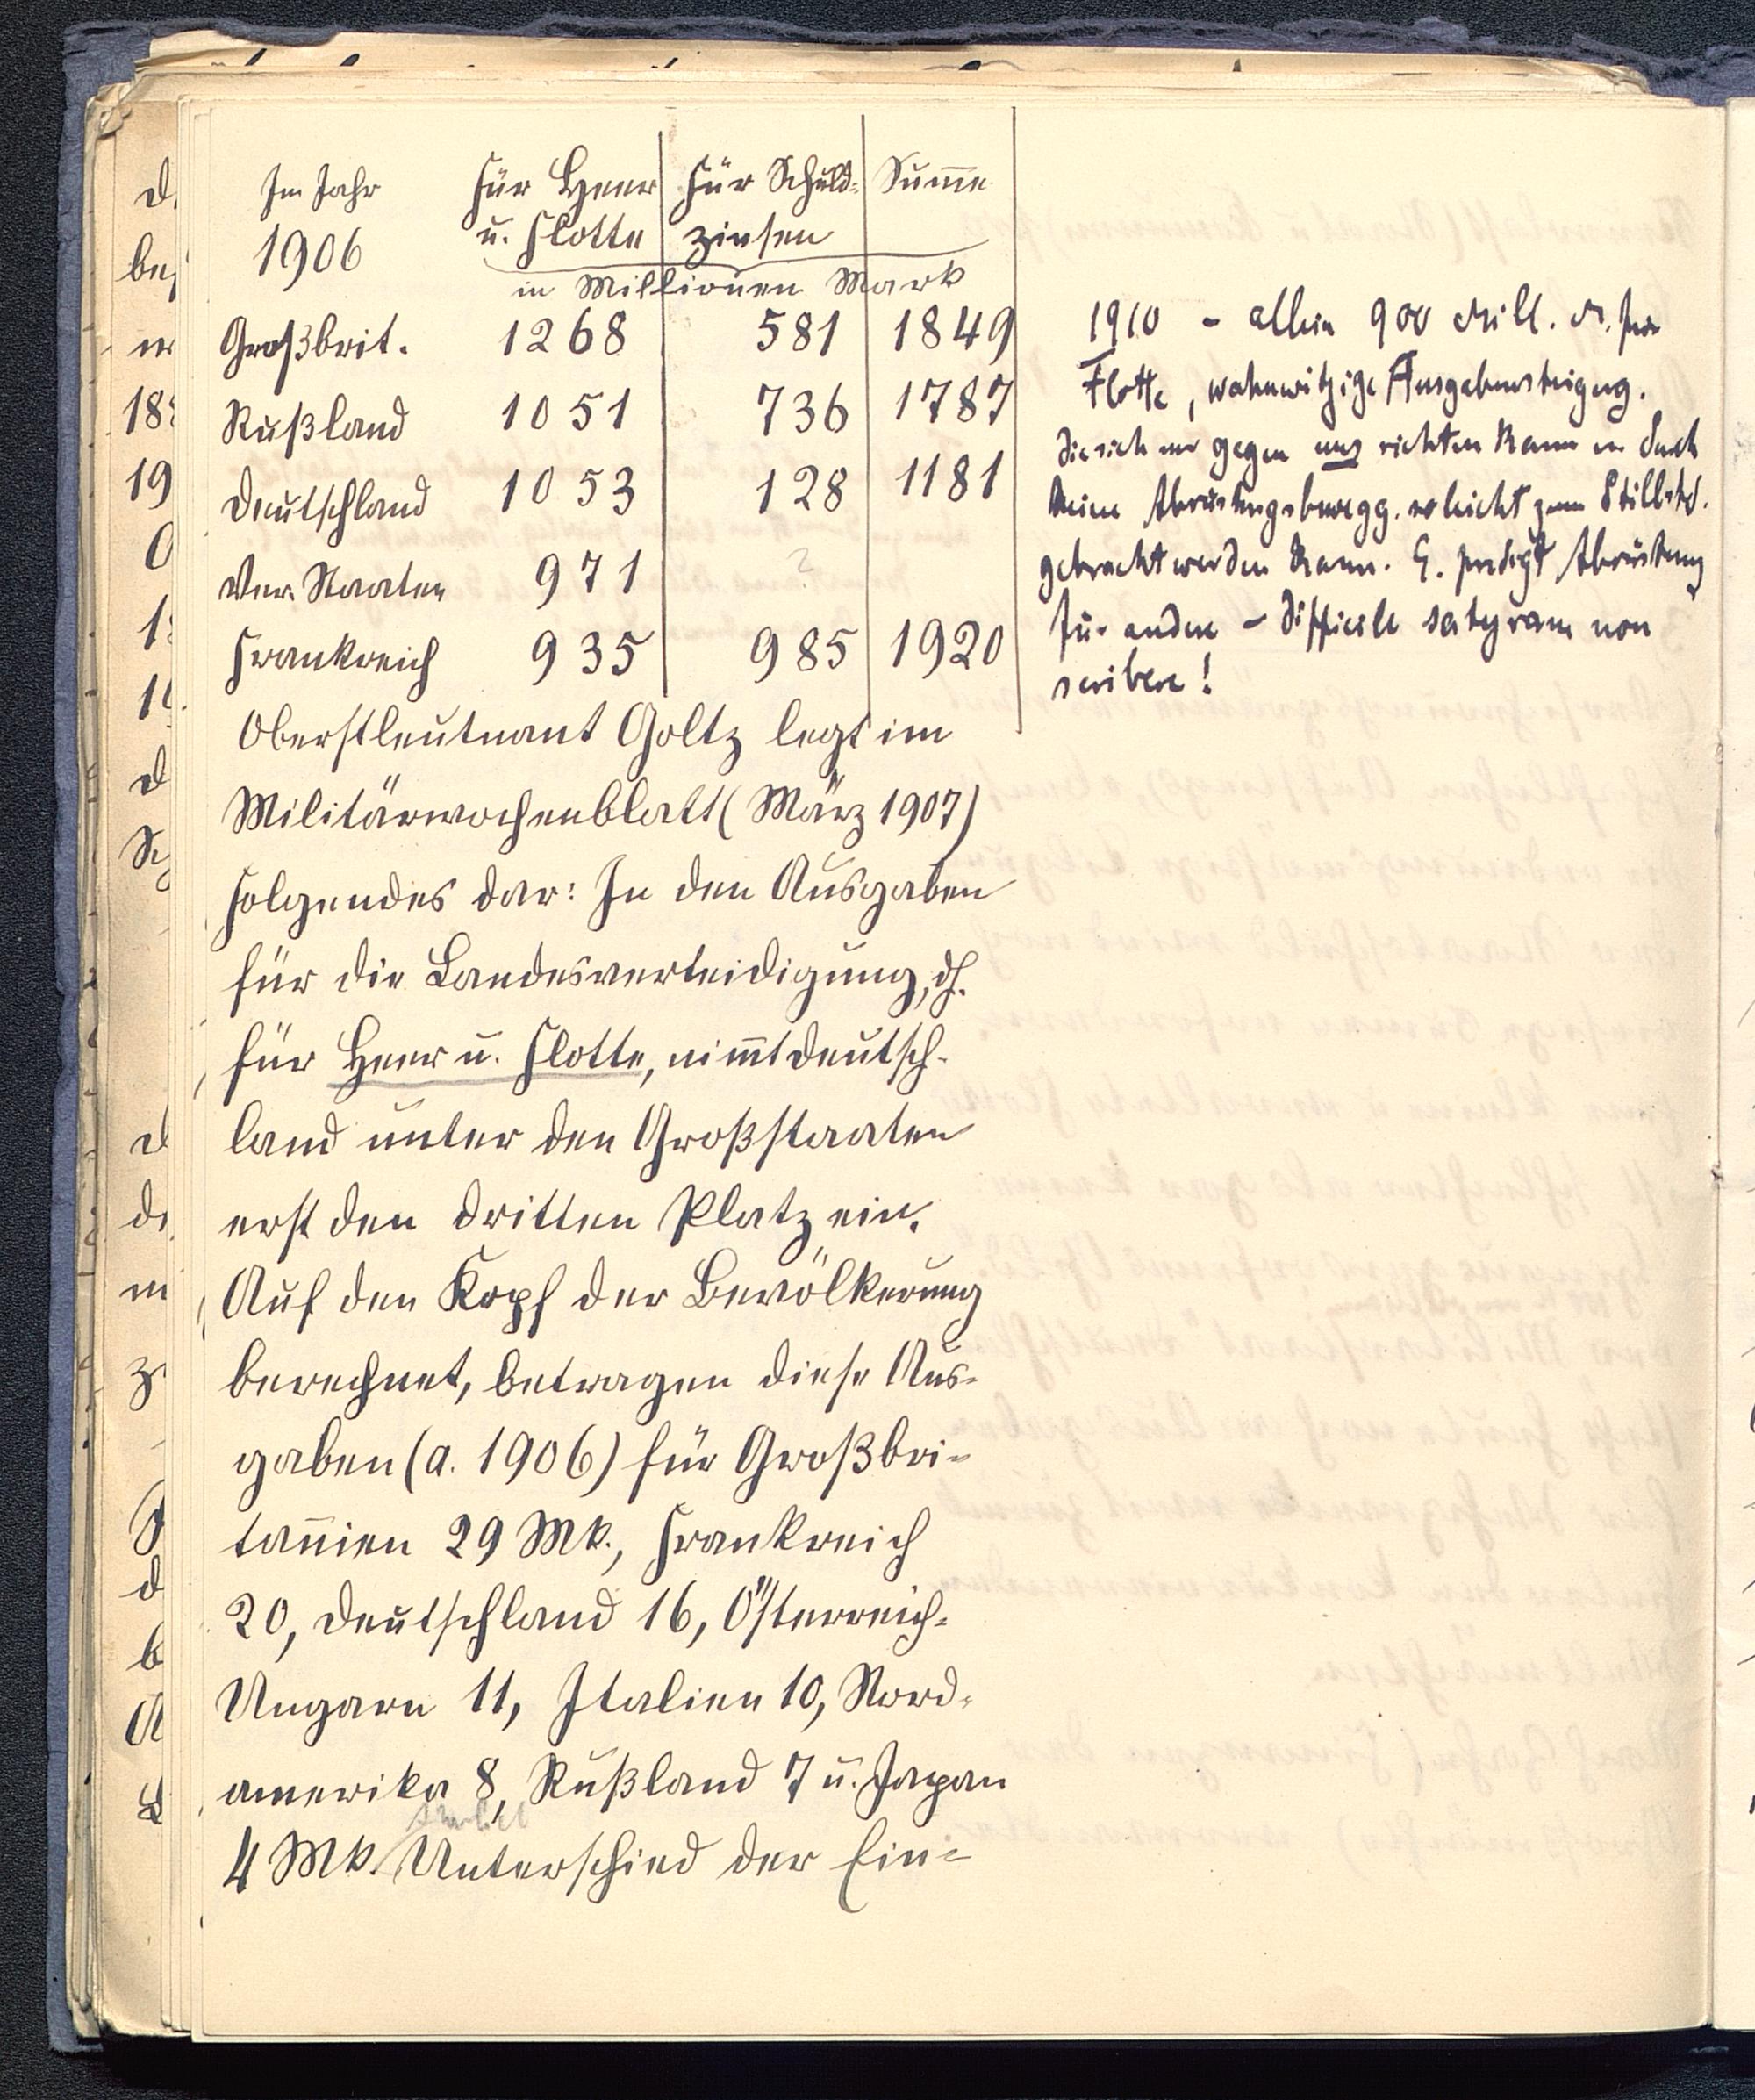 Im Jahr Für Heer Für Schuld- Summe
1906 u. Flotte zinsen
in Millionen Mark
Großbrit. 1268 581 1849
Rußland 1051 736 1787
Deutschland 1053 128 1181
Ver. Staaten 971 ?
Frankreich 935 985 1920
Oberstleutnant Goltz legt im
Militärwochenblatt (März 1907)
Folgendes dar: In den Ausgaben
für die Landesverteidigung, dh.
für Heer u. Flotte, nim̄t Deutsch-
land unter den Großstaaten
erst den dritten Platz ein.
Auf den Kopf der Bevölkerung
berechnet, betragen diese Aus-
gaben (a. 1906) für Großbri-
tan̄ien 29 Mk., Frankreich
20, Deutschland 16, Österreich-
Ungarn 11, Italien 10, Nord-
amerika 8, Rußland 7 u. Japan
4 Mk. Unterschied der Ein-
1910 - allein 900 Mill. M. für
Flotte, wahnwitzige Ausgabensteigerg.
die sich nur gegen uns richten kann u. durch
keine Abrüstungsbewegg. so leicht zum Stillstd.
gebracht werden kann. E. predigt Abrüstung
für andere - difficile satyram non
scribere!